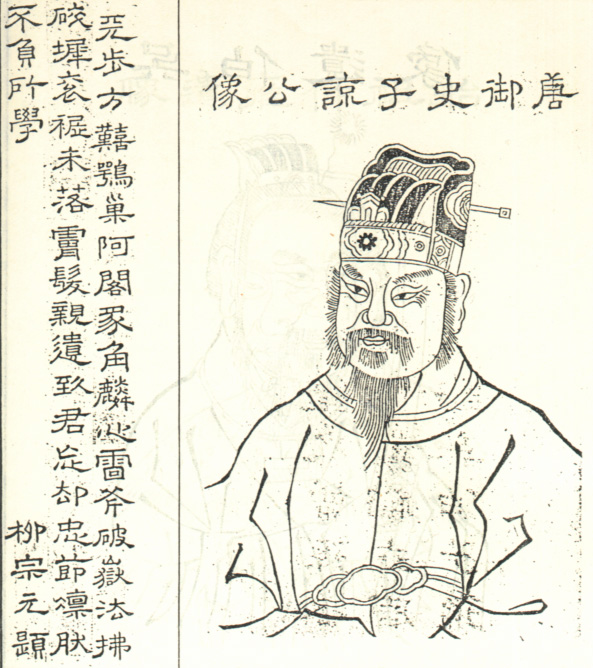 唐御史子諒公像
步方囏鶚巢阿閣豸角麟心雷斧破嶽法拂
墀衮裾未落髮親遺致君却忠節凜肰
不負所學
柳宗元題